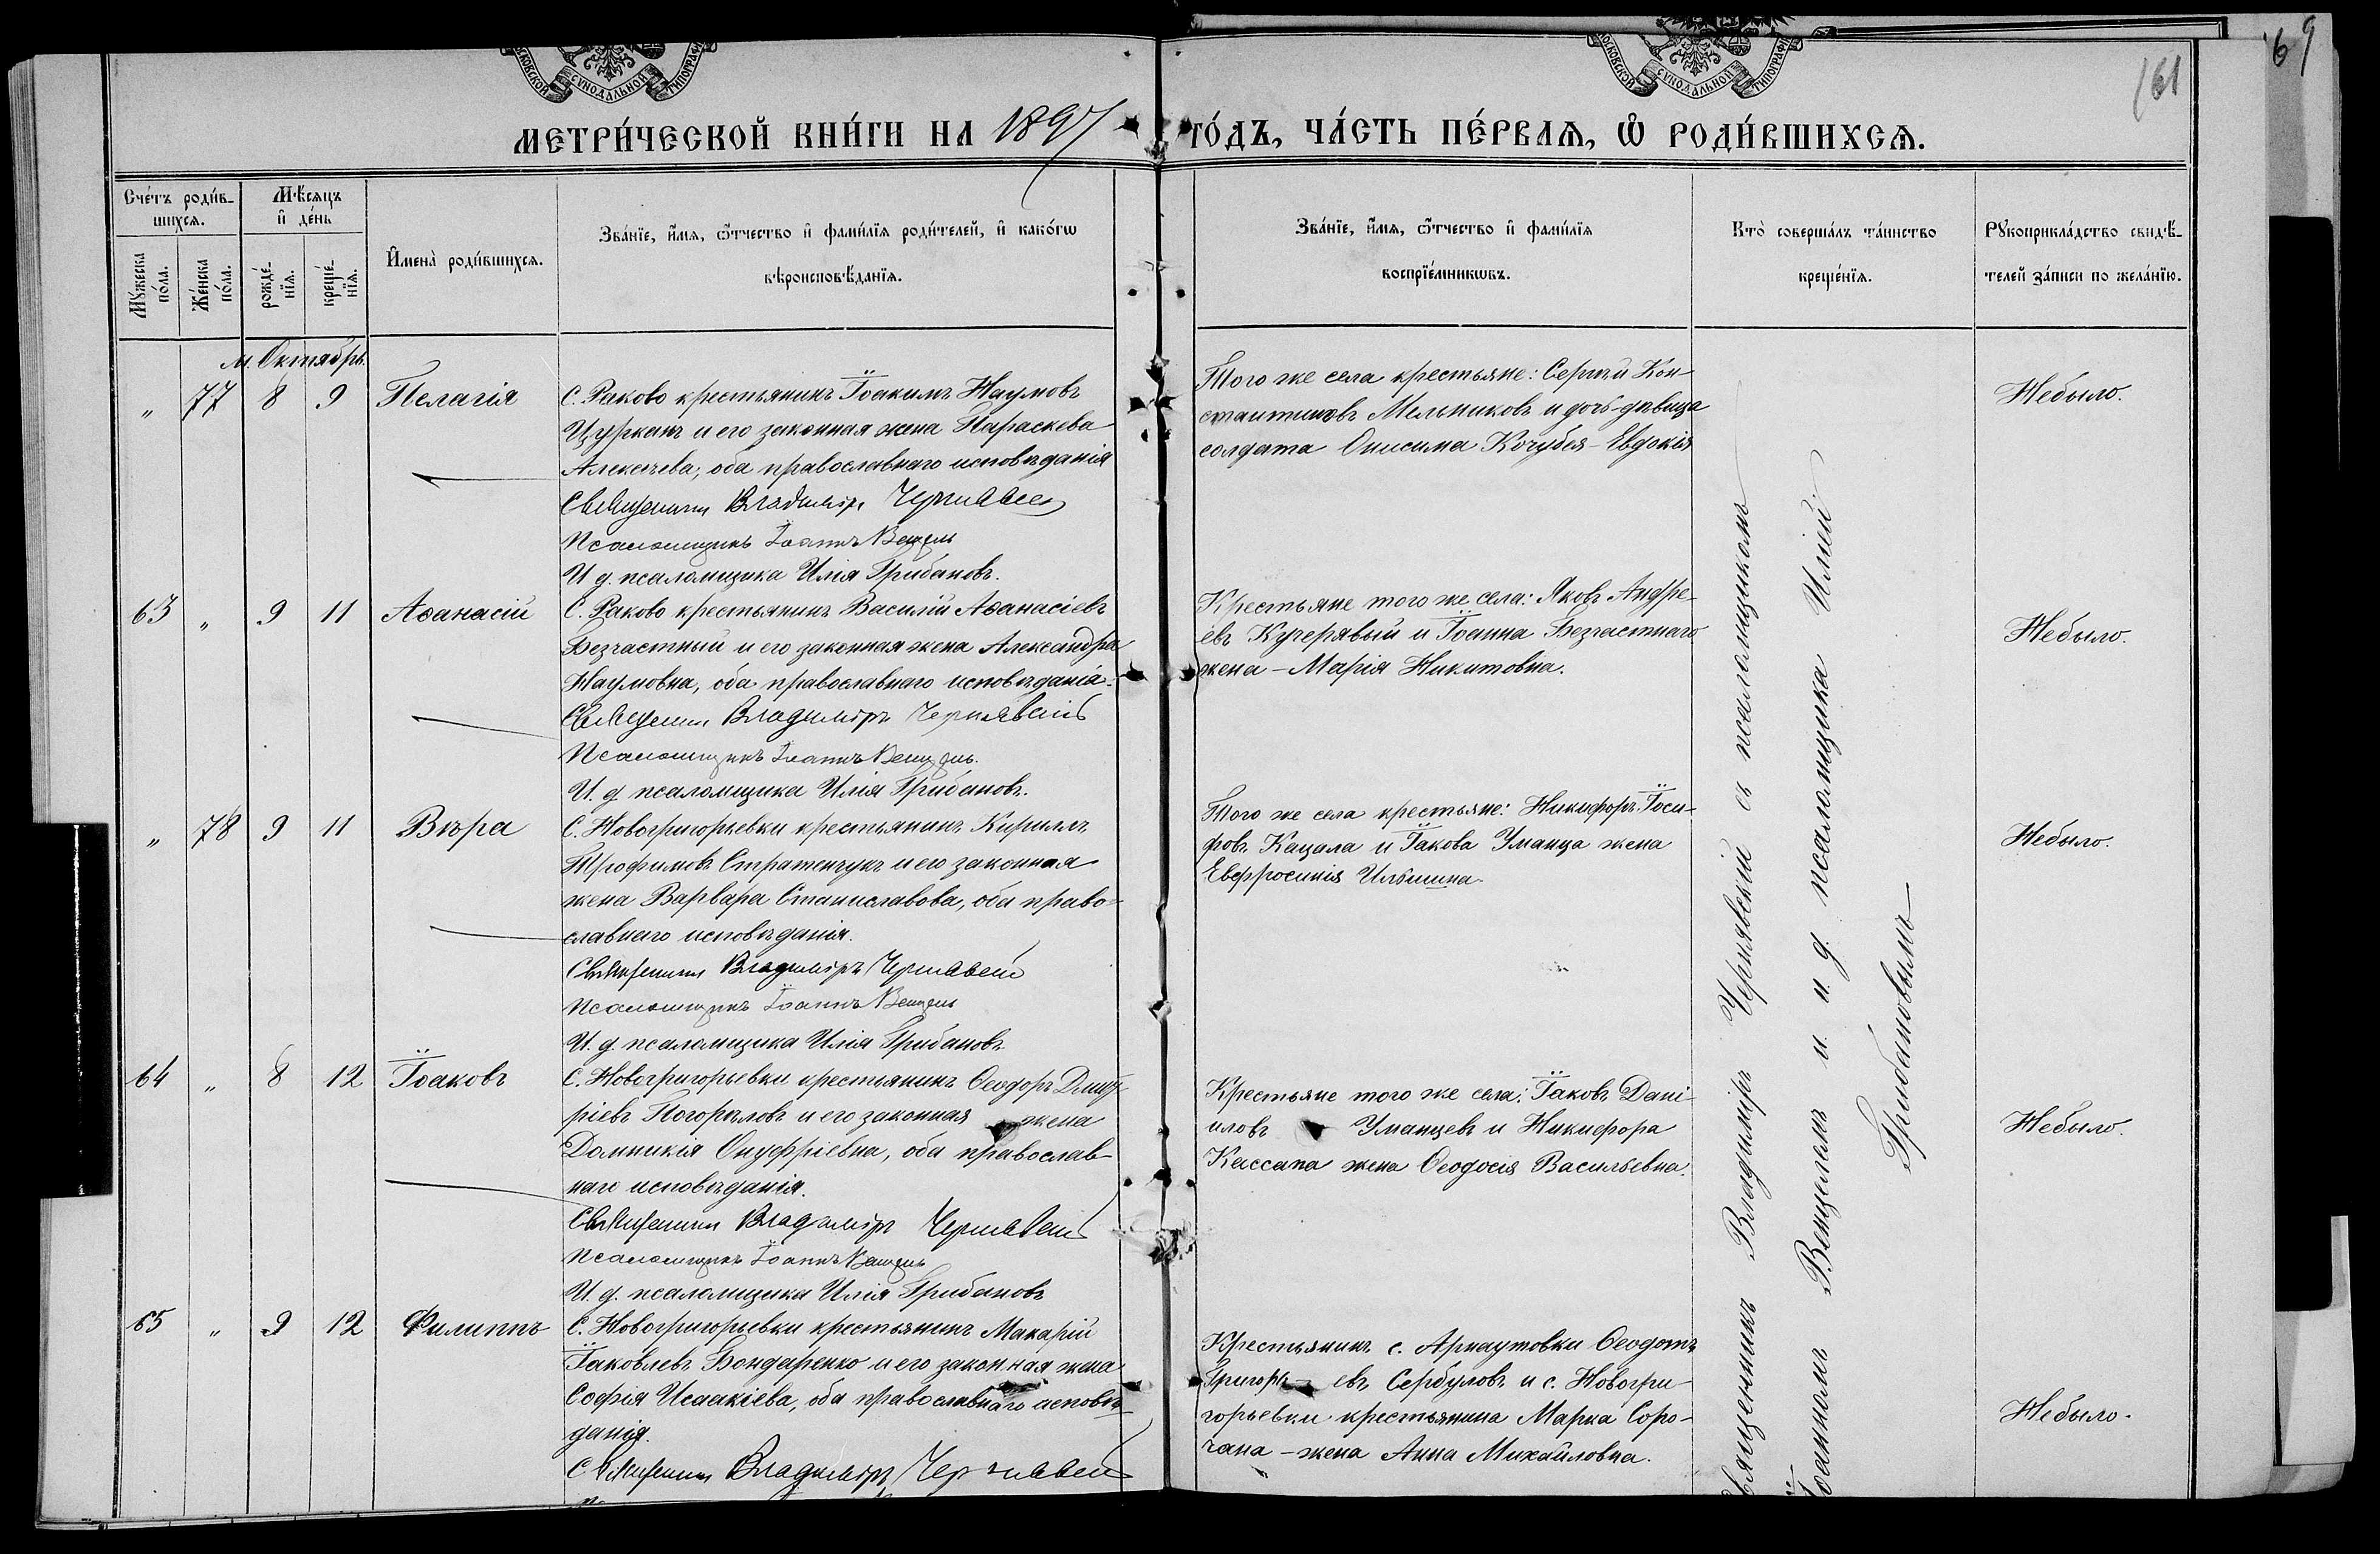 69
161
МОСКОВСКОЙ СѴНОДАЛЬНОЙ ТИПОГРАФІИ
МЕТРИ́ЧЕСКОЙ КНИ́ГИ НА 1897
ГО́ДЪ, ЧА́СТЬ ПЕ́РВАЯ, Ѽ РОДИ́ВШИХСЯ.
Сче́тъ роди́в-
шихся.
Мѣ́сяцъ
и҆ де́нь
Му́жеска
по́ла.
Же́нска
по́ла.
рожде́-
нїя.
креще́-
нїя.
И҆мена̀ роди́вшихся.
Зва́нїе, и҆́мя, ѻ҆́тчество и҆ фами́лїя роди́телей, и҆ како́гѡ
вѣроисповѣ́данїя.
Зва́нїе, и҆́мя, ѻ҆́тчество и҆ фами́лїя
воспрїе́мникѡвъ.
Кто̀ соверша́лъ та́инство
креще́нїя.
Рꙋкоприкла́дство свидѣ́-
телей за́писи по жела́нїю.
м. Октябрь.
„ 77 8 9 Пелагія
С. Раково крестьянинъ Іоакимъ Наумовъ
Цурканъ и его законная жена Параскева
Алексѣева, оба православнаго исповѣданія
Священникъ Владиміръ Чернявскій
Псаломщикъ Іоаннъ Венцель
И д. псаломщика Илія Грибановъ.
Того же села крестьяне: Сергѣй Кон-
стантиновъ Мельниковъ и дочь-дѣвица
солдата Онисима Кочубея - Евдокія
Небыло.
63 „ 9 11 Аѳанасій
С. Раково крестьянинъ Василій Аѳанасіевъ
Безчастный и его законная жена Александра
Наумовна, оба православнаго исповѣданія.
Священникъ Владиміръ Чернявскій
Псаломщикъ Іоаннъ Венцель.
И. д. псаломщика Илія Грибановъ.
Крестьяне того же села: Яковъ Андре-
евъ Кучерявый и Іоанна Безчастнаго
жена - Марія Никитовна.
Небыло.
„ 78 9 11 Вѣра
С. Новогригорьевки крестьянинъ Кириллъ
Трофимовъ Стратенчукъ и его законная
жена Варвара Станиславова, оба право-
славнаго исповѣданія.
Священникъ Владиміръ Чернявскій
Псаломщикъ Іоаннъ Венцель
И. д. псаломщика Илія Грибановъ
Того же села крестьяне: Никифоръ Іоси-
фовъ Кацала и Іакова Уманца жена
Евфросинія Ильина.
Небыло.
64 „ 8 12 Іоаковъ
С. Новогригорьевки крестьянинъ Ѳеодоръ Дмит-
ріевъ Погорѣловъ и его законная жена
Домникія Онуфріевна, оба православ-
наго исповѣданія.
Священникъ Владиміръ Чернявскій
Псаломщикъ Іоаннъ Венцель
И. д. псаломщика Илія Грибановъ
Крестьяне того же села: Іаковъ Дані-
иловъ Уманцевъ и Никифора
Кассапа жена Ѳеодосія Васильевна.
Небыло.
65 „ 9 12 Филиппъ
С. Новогригорьевки крестьянинъ Макарій
Іаковлевъ Бондаренко и его законная жена
Софія Исаакіева, оба православнаго исповѣ-
данія.
Священникъ Владиміръ Чернявскій
Крестьянинъ с. Арнаутовки Ѳеодотъ
Григорьевъ Сербуловъ и с. Новогри-
горьевки крестьянина Марка Соро-
чана - жена Анна Михайловна.
Небыло.
Священникъ Владиміръ Чернявскій съ псаломщикомъ
Іоанномъ Венцелемъ и и. д псаломщика Иліей
Грибановымъ